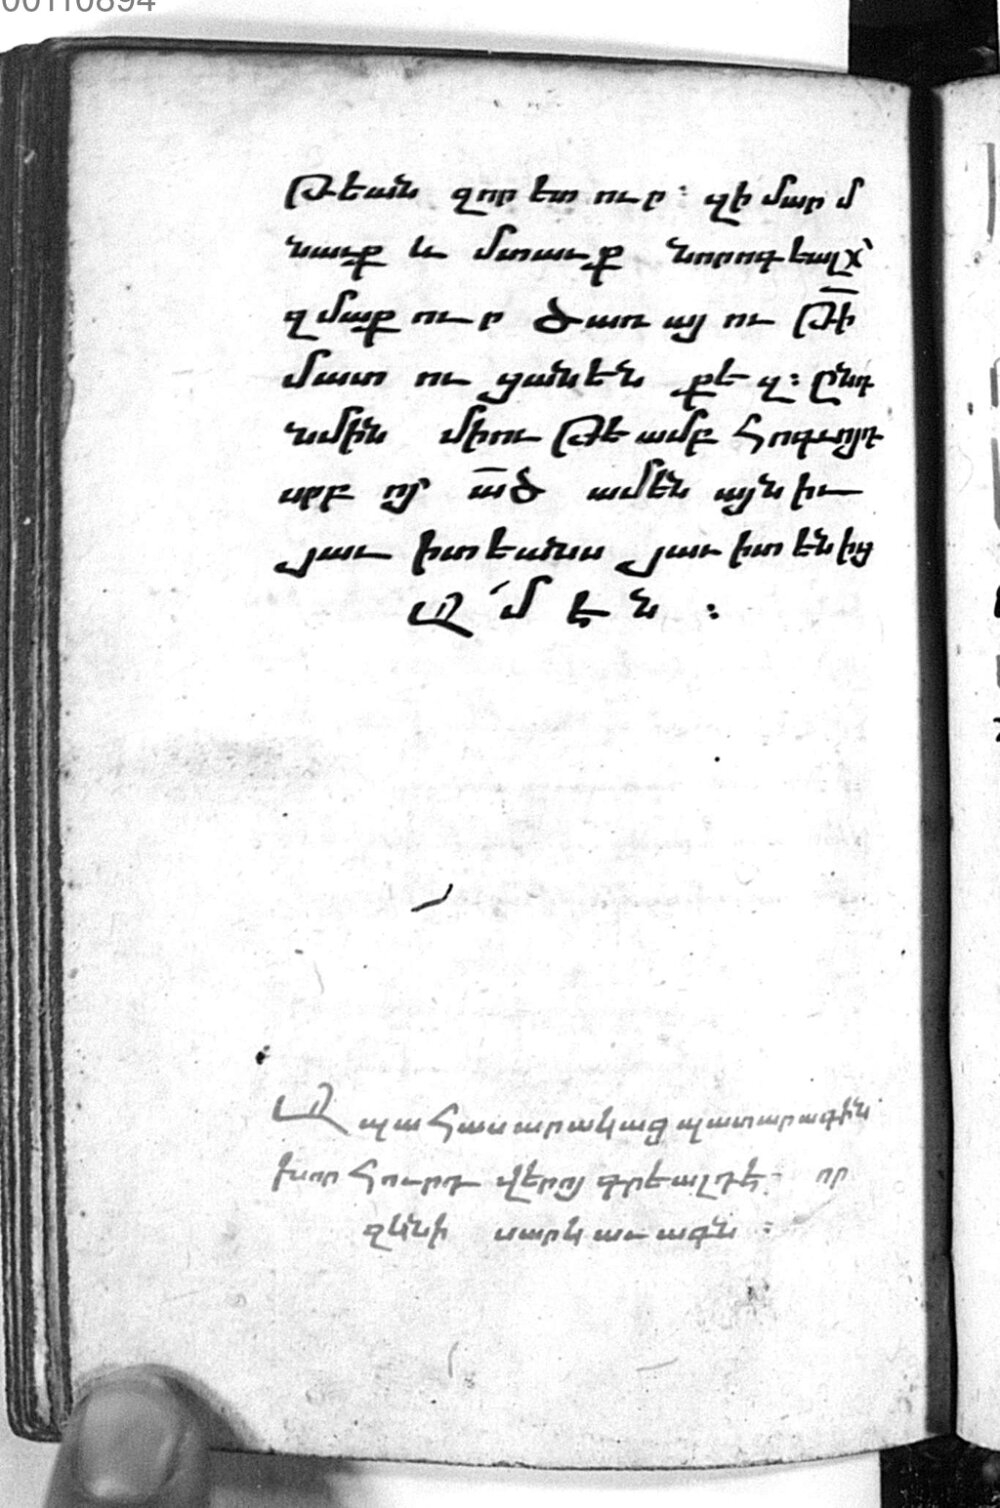 00110894
թեան զորետուր։ զի մարմ
նաւք և մտաւք նորոգեալք՝
զմաքուր ծառայութի
մատուցանեն քեզ։ ընդ
նմին միութեամբ հոգւոյդ
սրբոյ ած ամէնայնիւ
յաւիտեանս յաւիտէնից
Ա՛մէն ։
Ապա հասարակաց պատարագին
խորհուրդ վերոյ գրեալդէ որ
զկնի սարկաւագն ։